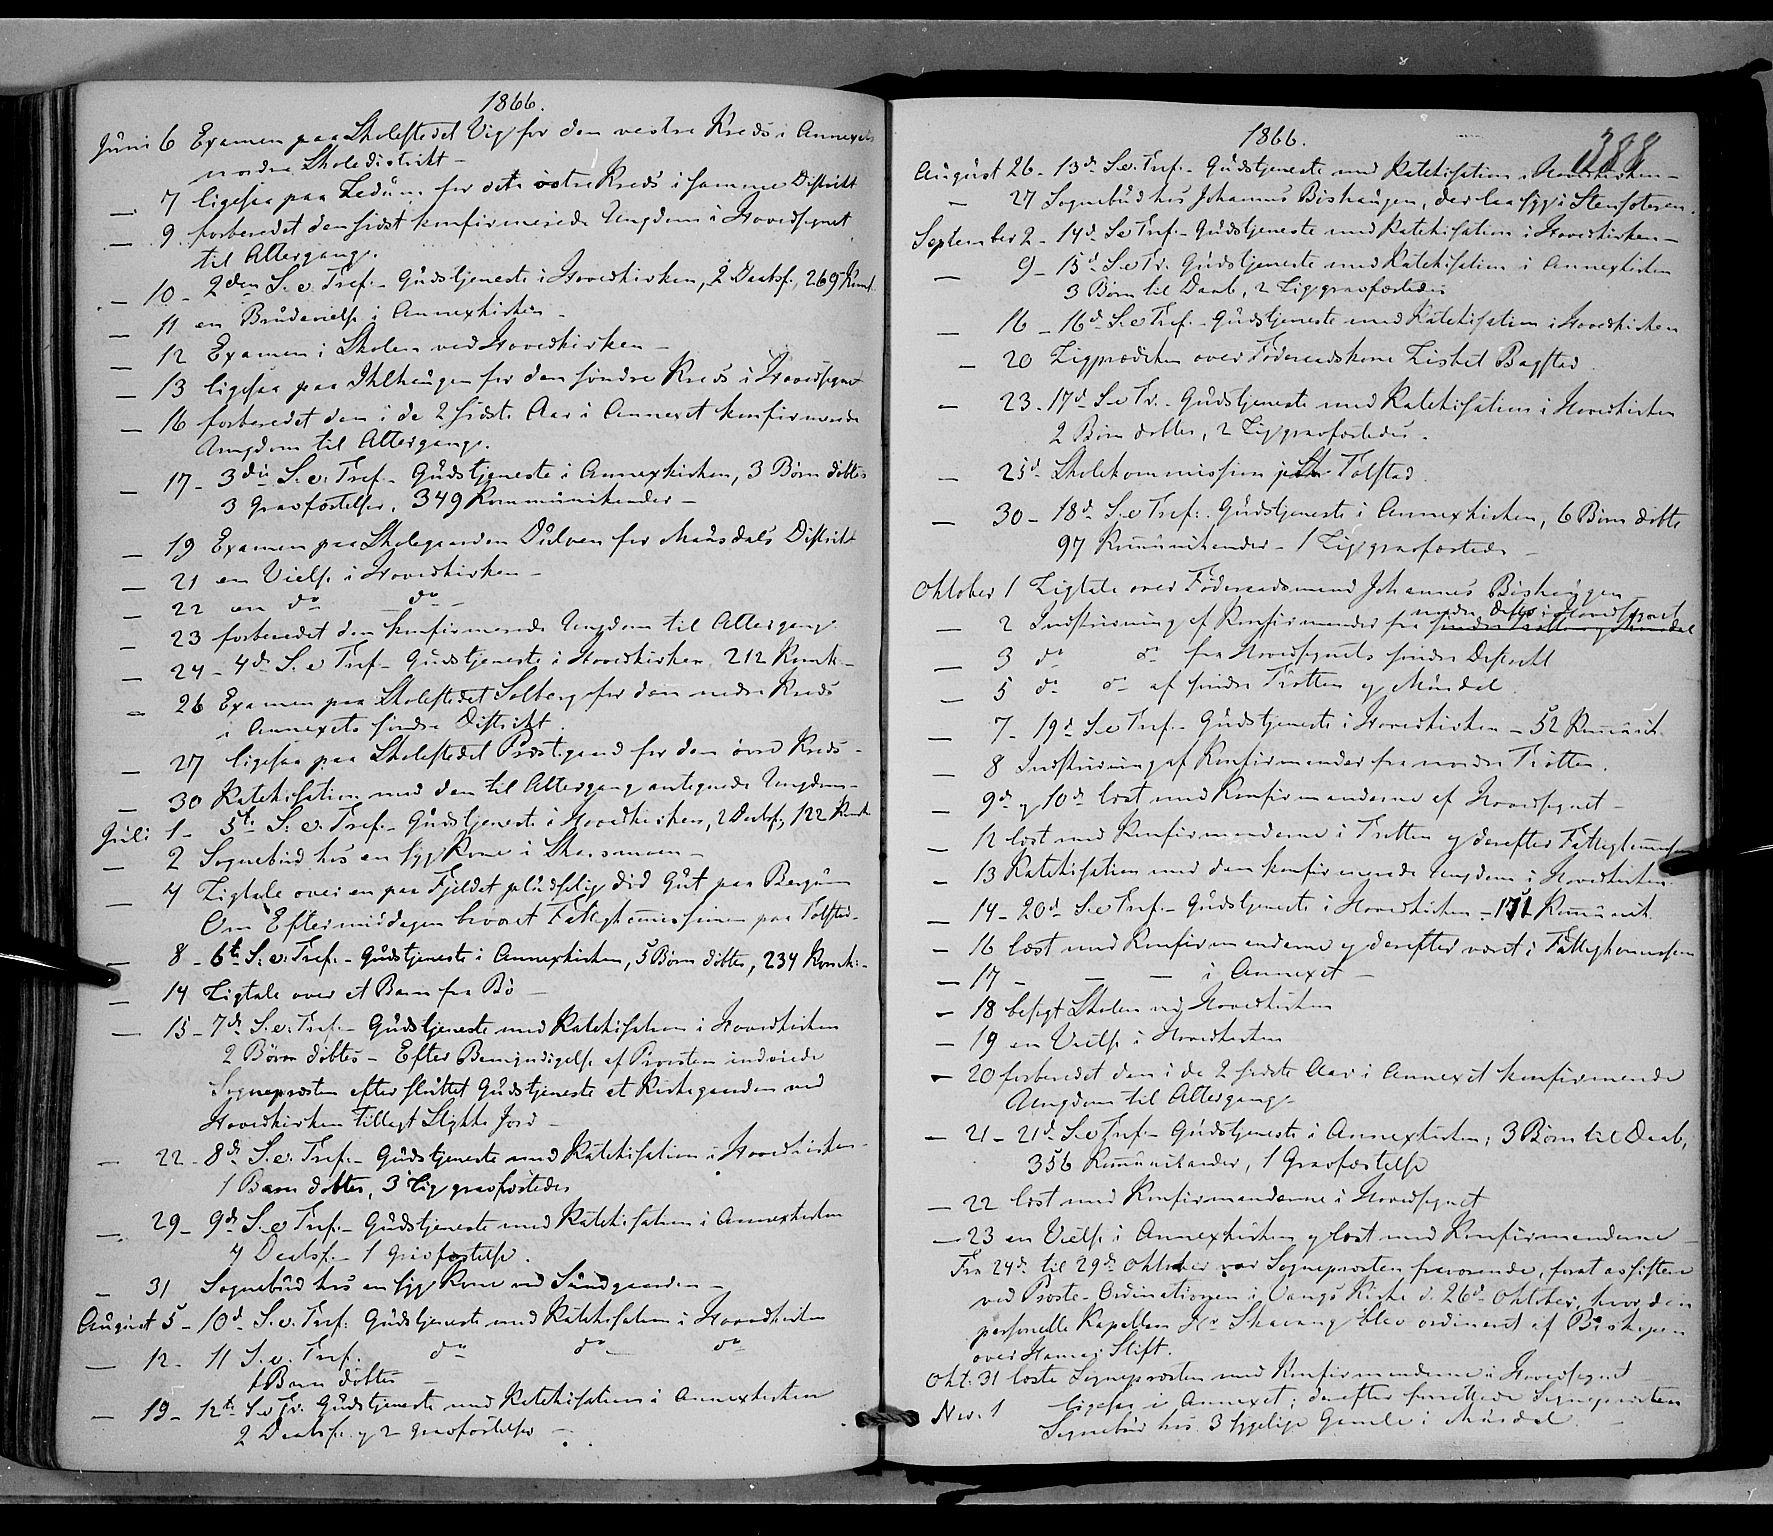 1866.
Juni 6 Examen paa Skolestedet Vig for den vestre Kreds i Annexets
nordre Skoledistrikt –
— 7 ligesaa paa Ledum for dets østre Kreds i samme Distrikt
— 9. forberedet den sidst konfirmerede Ungdom i Hovedsognet
til Altergang.
— 10 – 2den S. e. Tref. – Gudstjeneste i Hovedkirken, 2 Daabsf., 269 Kom.
— 11 en Brudevielse i Annexkirken –
— 12 Examen i Skolen ved Hovedkirken –
— 13 ligesaa paa Ihlhaugen for den søndre Kreds i Hovedsognet
— 16 forberedet den i de 2 sidste Aar i Annexet konfirmerede
Ungdom til Altergang.
— 17 – 3die S. e. Tref. – Gudstjeneste i Annexkirken, 3 Børn døbtes
3 Gravfæstelser, 349 Kommunikander –
— 19 Examen paa Skolegaarden for Musdals Distrikt
— 21 en Vielse i Hovedkirken –
— 22 en do do –
— 23 forberedet den konfirmerede Ungdom til Altergang
— 24 – 4de S. e. Tref – Gudstjeneste i Hovedkirken, 212 Komk. –
— 26 Examen paa Skolestedet Solberg for den nedre Kreds
i Annexets søndre Distrikt
— 27 ligesaa paa Skolestedet Prestgard for den øvre Kreds –
— 30 Katekisation med den til Altergang antegnede Ungdom –
Juli 1 – 5te S. e. Tref. – Gudstjeneste i Hovedkirken, 2 Daabsf., 122 Komk
— 2 Sognebud hos en syg Kone i –
— 4 Ligtale over en paa Fjeldet pludselig død Gut paa Bergum
Om Eftermiddagen bivaanet Fattigkommissionen paa Tolstad –
— 8 – 6te S. e. Tref. – Gudstjeneste i Annexkirken, 5 Børn døbtes, 234 Komk. –
— 14 Ligtale over et Barn fra Bø –
— 15 – 7de S. e. Tref. – Gudstjeneste med Katekisation i Hovedkirken
2 Børn døbtes – Efter Bemyndigelse af Provsten indviede
Sognepresten efter sluttet Gudstjeneste et Kirkegaarden ved
Hovedkirken tillagt Stykke Jord –
— 22 – 8de S. e. Tref. – Gudstjeneste med Katekisation i Hovedkirken –
1 Barn døbtes, 3 Lig gravfæstedes
— 29 – 9de S. e. Tref – Gudstjeneste med Katekisation i Annexkirken
4 Daabsf. – 1 Gravfæstelse.
— 31 Sognebud hos en syg Kone ved Sundgaarden –
August 5 – 10de S. e. Tref. Gudstjeneste med Katekisation i Hovedkirken
— 12 – 11 S. e. Tref. do do do
1 Barn døbtes –
— 19 – 12te S. e. Tr. Gudstjeneste med Katekisation i Annexkirken
2 Daabsf. og 2 Gravfæstelser –
1866.
388
August 26 – 13de S. e. Tref. – Gudstjeneste med Katekisation i Hovedkirken –
— 27 Sognebud hos Johannes Bøshaugen, der laa syg i
September 2 – 14de S. e. Tref. – Gudstjeneste med Katekisation i Hovedkirken –
— 9 – 15de S. e. Tr. Gudstjeneste med Katekisation i Annexkirken
3 Børn til Daab, 2 Lig gravfæstedes
— 16 – 16de S. e. Tref. – Gudstjeneste med Katekisation i Hovedkirken
— 20 Ligprædiken over Føderaadskone Lisbet Bagstad
— 23 – 17de S. e. Tr. – Gudstjeneste med Katekisation i Hovedkirken
2 Børn døbtes, 2 Lig gravfæstedes.
— 25de Skolekommission paa Tolstad.
— 30 – 18de S. e. Tref. – Gudstjeneste i Annexkirken, 6 Børn døbte
97 Kommunikander – 1 Lig gravfæstedes –
Oktober 1 Ligtale over Føderaadsmand Johannes Bøshaugen
— 2 Indskrivning af Konfirmander fra nordre Distr. i Hovedsognet
— 3 do do fra Hovedsognets søndre Distrikt
— 5 do do af søndre Tretten og Musdal.
— 7 – 19de S. e. Tref. – Gudstjeneste i Hovedkirken – 52 Kommunik.
— 8 Indskrivning af Konfirmander fra nordre Tretten.
— 9de og 10de læst med Konfirmanderne af Hovedsognet –
— 12 læst med Konfirmanderne i Tretten og derefter
— 13 Katekisation med den konfirmerede Ungdom i Hovedkirken
— 14 – 20de S. e. Tref. – Gudstjeneste i Hovedkirken – 171 Kommunik.
— 16 læst med Konfirmanderne og derefter været i Fattigkommission
— 17 – – – i Annexet –
— 18 besøgt Skolen ved Hovedkirken
— 19 en Vielse i Hovedkirken
— 20 forberedet den i de 2 sidste Aar i Annexet konfirmerede
Ungdom til Altergang –
— 21 – 21de S. e. Tref. – Gudstjeneste i Annexkirken; 3 Børn til Daab,
356 Kommunikander, 1 Gravfæstelse
— 22 læst med Konfirmanderne i Hovedsognet
— 23 en Vielse i Annexkirken og læst med Konfirmanderne –
Fra 24de til 29de Oktober var Sognepresten fraværende, for at assistere
ved Preste-Ordinationen i Vangs Kirke d. 26de Oktober, hvor den
personelle Kapellan Hr. blev ordineret af Biskopen
over Hamar Stift.
Okt. 31 læste Sognepresten med Konfirmanderne i Hovedsognet
Nov. 1 ligesaa i Annexet; derefter forrettede Sognepresten
Sognebud hos 3 sygelige Gamle i Musdal. –